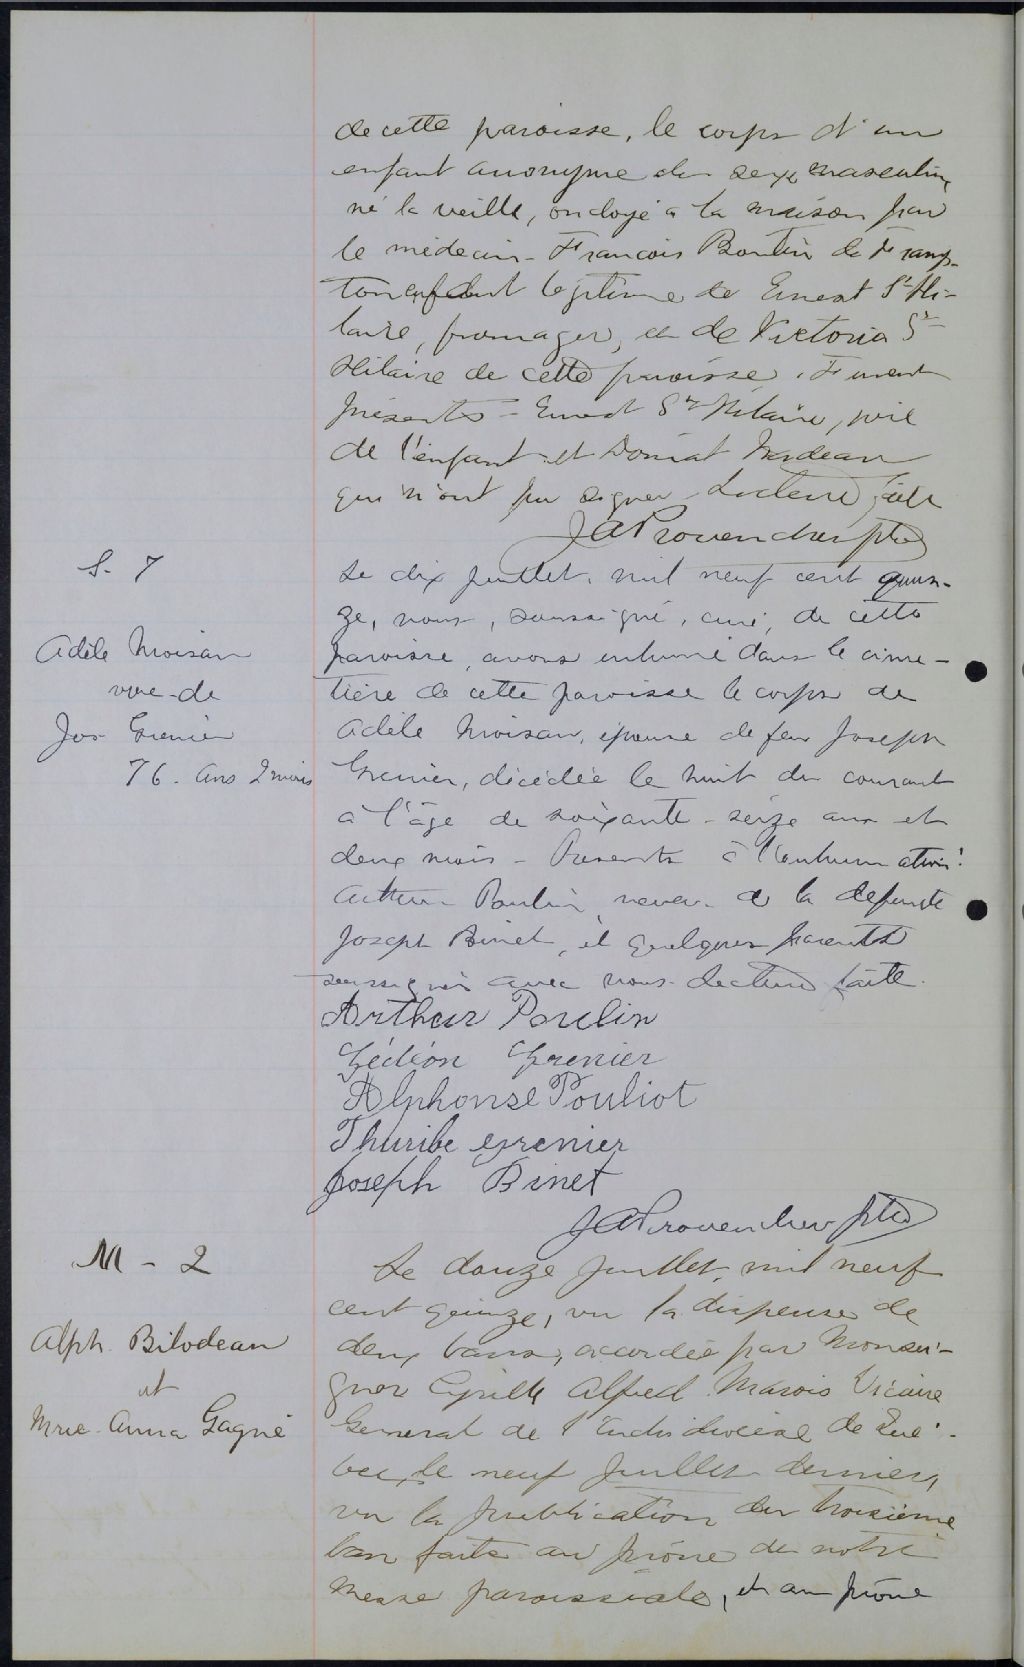 de cette paroisse, le corps d'un
enfant anonyme du sexe masculin,
né la veille, ondoyé à la maison par
le médecin François Boutin de Framp-
ton enfant légitime de Ernest St-Hi-
laire, fromager, et de Victoria St-
Hilaire de cette paroisse. Furent
présents - Ernest St-Hilaire, père
de l'enfant et Doniat Nadeau
qui n'ont pu signer Lecture faite
JAProvencher ptre
S. 7
Adèle Moisan
vve de
Jos Grenier
76. ans 2 mois
Le dix juillet, mil neuf cent quin-
ze, nous, soussigné, curé, de cette
paroisse, avons inhumé dans le cime-
tière de cette paroisse le corps de
Adèle Moisan, épouse de feu Joseph
Grenier, décédée le huit du courant
à l'âge de soixante-seize ans et
deux mois - Présents à l'inhumation:
Arthur Poulin, neveu de la défunte
Joseph Binet, et quelques parents
soussignés avec nous. Lecture faite.
Arthur Poulin
Gédéon Grenier
Alphonse Pouliot
Thuribe Grenier
Joseph Binet
JAProvencher ptre
M - 2
Alph. Bilodeau
et
Mrie-Anna Gagné
Le douze juillet, mil neuf
cent quinze, vu la dispense de
deux bans, accordée par Monsei-
gneur Cyrille Alfred Marois Vicaire
Général de l'Archidiocèse de Qué-
bec, le neuf juillet dernier,
vu la publication du troisième
ban faite au prône de notre
messe paroissiale, et au prône